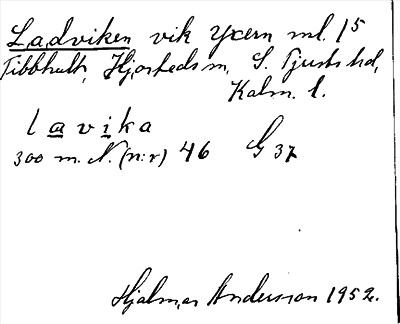 Ladviken vik Yxern ml. 15
Tibbhult, Hjorteds sn, S. Tjusts hd,
Kalm. l.
lavika
300 m. N. (nr) 46 G 37
Hjalmar Andersson 1952.